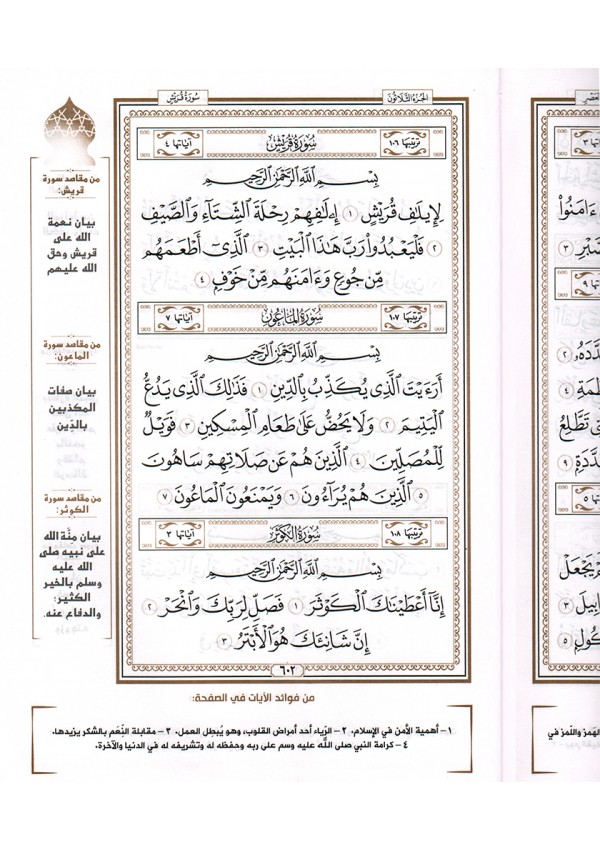 سُورَةُ قُرَيْشٍ
الجُزْءُ الثَّلَاثُونَ
ترتيبها ١٠٦ سُورَةُ قُرَيْشٍ آياتها ٤
بِسْمِ اللَّهِ الرَّحْمَٰنِ الرَّحِيمِ
لِإِيلَٰفِ قُرَيْشٍ ١ إِۦلَٰفِهِمْ رِحْلَةَ الشِّتَآءِ وَالصَّيْفِ
٢ فَلْيَعْبُدُوا۟ رَبَّ هَٰذَا الْبَيْتِ ٣ الَّذِىٓ أَطْعَمَهُم
مِّن جُوعٍ وَءَامَنَهُم مِّنْ خَوْفٍۭ ٤
ترتيبها ١٠٧ سُورَةُ المَاعُونِ آياتها ٧
بِسْمِ اللَّهِ الرَّحْمَٰنِ الرَّحِيمِ
أَرَءَيْتَ الَّذِى يُكَذِّبُ بِالدِّينِ ١ فَذَٰلِكَ الَّذِى يَدُعُّ
الْيَتِيمَ ٢ وَلَا يَحُضُّ عَلَىٰ طَعَامِ الْمِسْكِينِ ٣ فَوَيْلٌ
لِّلْمُصَلِّينَ ٤ الَّذِينَ هُمْ عَن صَلَاتِهِمْ سَاهُونَ
٥ الَّذِينَ هُمْ يُرَآءُونَ ٦ وَيَمْنَعُونَ الْمَاعُونَ ٧
ترتيبها ١٠٨ سُورَةُ الكَوْثَرِ آياتها ٣
بِسْمِ اللَّهِ الرَّحْمَٰنِ الرَّحِيمِ
إِنَّآ أَعْطَيْنَٰكَ الْكَوْثَرَ ١ فَصَلِّ لِرَبِّكَ وَانْحَرْ ٢
إِنَّ شَانِئَكَ هُوَ الْأَبْتَرُ ٣
٦٠٢
من مقاصد سورة
قريش:
بيان نعمة
الله على
قريش وحق
الله عليهم
من مقاصد سورة
الماعون:
بيان صفات
المكذبين
بالدّين
من مقاصد سورة
الكوثر:
بيان منّة الله
على نبيه صلى
الله عليه
وسلم بالخير
الكثير؛
والدفاع عنه.
من فوائد الآيات في الصفحة:
١- أهمية الأمن في الإسلام. ٢- الرّياء أحد أمراض القلوب، وهو يُبطل العمل. ٣- مقابلة النّعم بالشكر يزيدها.
٤- كرامة النبي صلى الله عليه وسم على ربه وحفظه له وتشريفه له في الدنيا والآخرة.
ءَامَنُوا۟
٣
٩
ٱلْهَمز واللّمز في